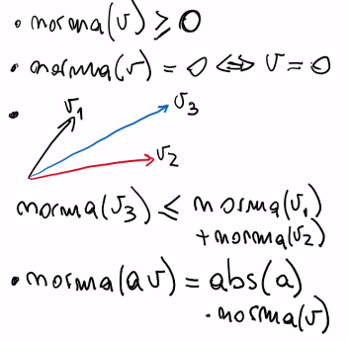 • norma(v) ≥ 0
• norma(v) = 0 ⟺ v = 0
•
v₁
v₃
v₂
norma(v₃) ≤ norma(v₁)
+ norma(v₂)
• norma(av) = abs(a)
· norma(v)